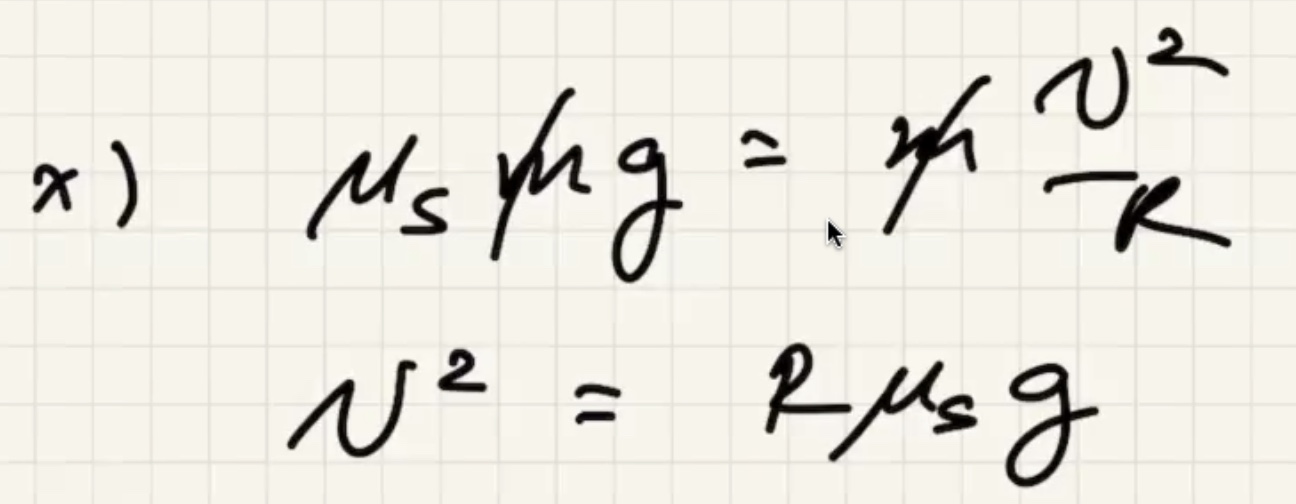 x) μₛ m g = m v²/R
v² = R μₛ g